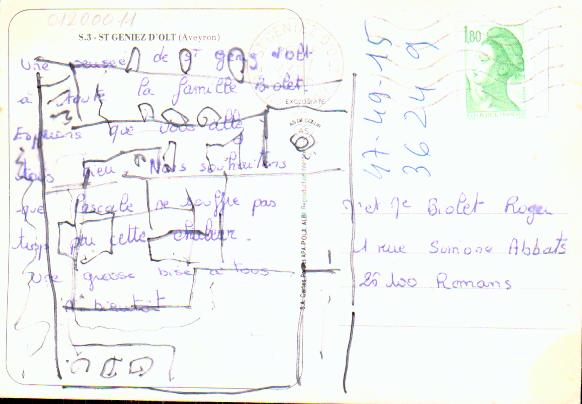 01200011
S.3 - ST GENIEZ D'OLT (Aveyron)
Une pensée de St Geniez d'olt
à toute la famille Biolet.
Espérons que vous allez
tous bien. Nous souhaitons
que Pascale ne souffre pas
trop par cette chaleur.
une grosse bise à tous
A bientôt
EXCLUSIVITÉ
AS DE CŒUR
1,80
47-49-15
36 24 9
Mr et Me Biolet Roger
1 rue Simone Abbats
26 100 Romans